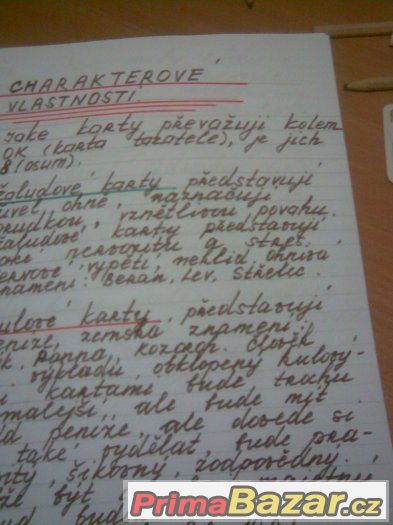 CHARAKTEROVÉ
VLASTNOSTI.
Jaké karty převažují kolem
OK (karta tazatele), je jich
8 (osum).
žaludové karty představují
živel ohně, naznačují
prudkou, vznětlivou povahu.
žaludové karty představují
také nervozitu a stres,
nervové vypětí, neklid ohnivá
znamení: BERAN, LEV, STŘELEC.
kulové karty, představují
peníze, zemská znamení.
Panna, kozoroh. Člověk
výkladu, obklopený kulový-
kartami bude trochu
pomalejší, ale bude mít
rád peníze, ale dovede si
také vydělat, bude pra-
šikovný, zodpovědný.
být
bude
PrimaBazar.cz